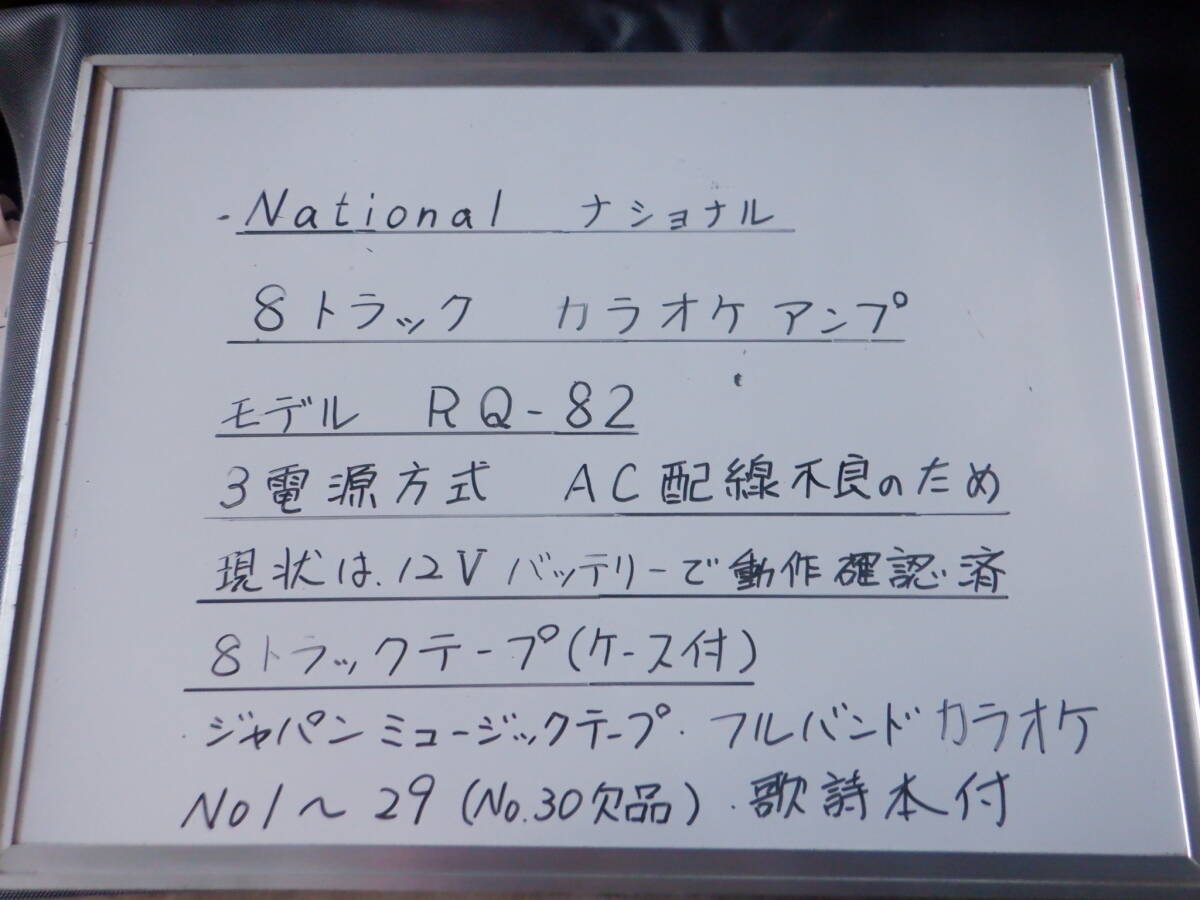 ・National ナショナル
8トラック カラオケ アンプ
モデル RQ-82
3電源方式 AC配線不良のため
現状は、12Vバッテリーで動作確認済
8トラックテープ(ケース付)
・ジャパンミュージックテープ・フルバンドカラオケ
No1~29(No.30欠品)・歌詩本付